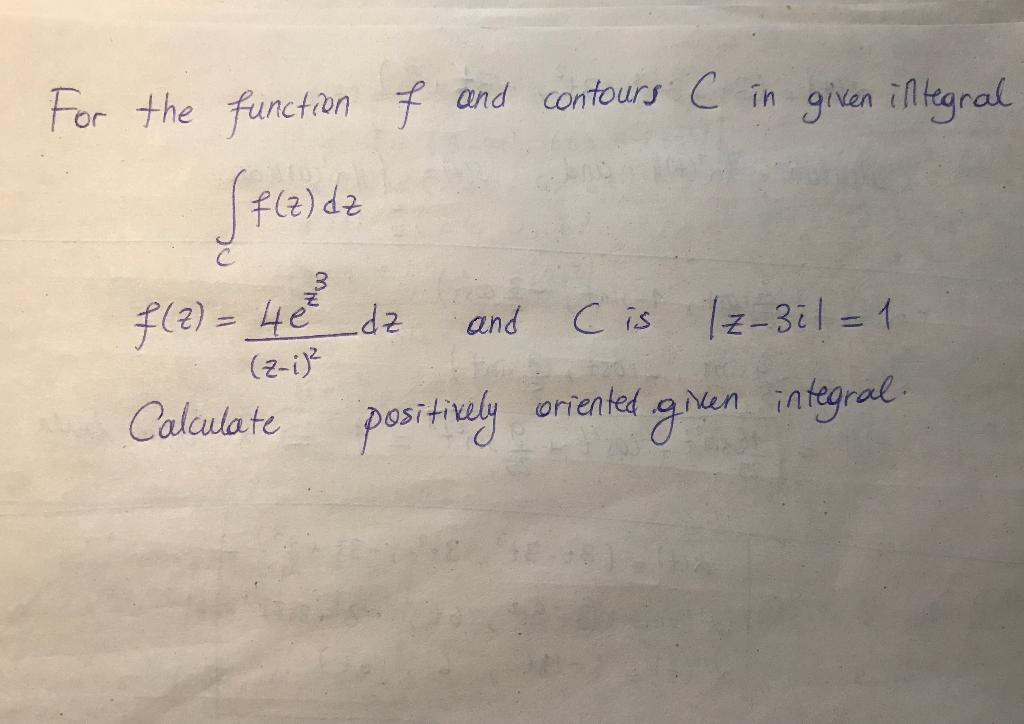 For the function f and contours C in given integral
∫_C f(z) dz
f(z) = 4e^{z^3} / (z-i)^2 dz and C is |z-3i| = 1
Calculate positively oriented given integral.